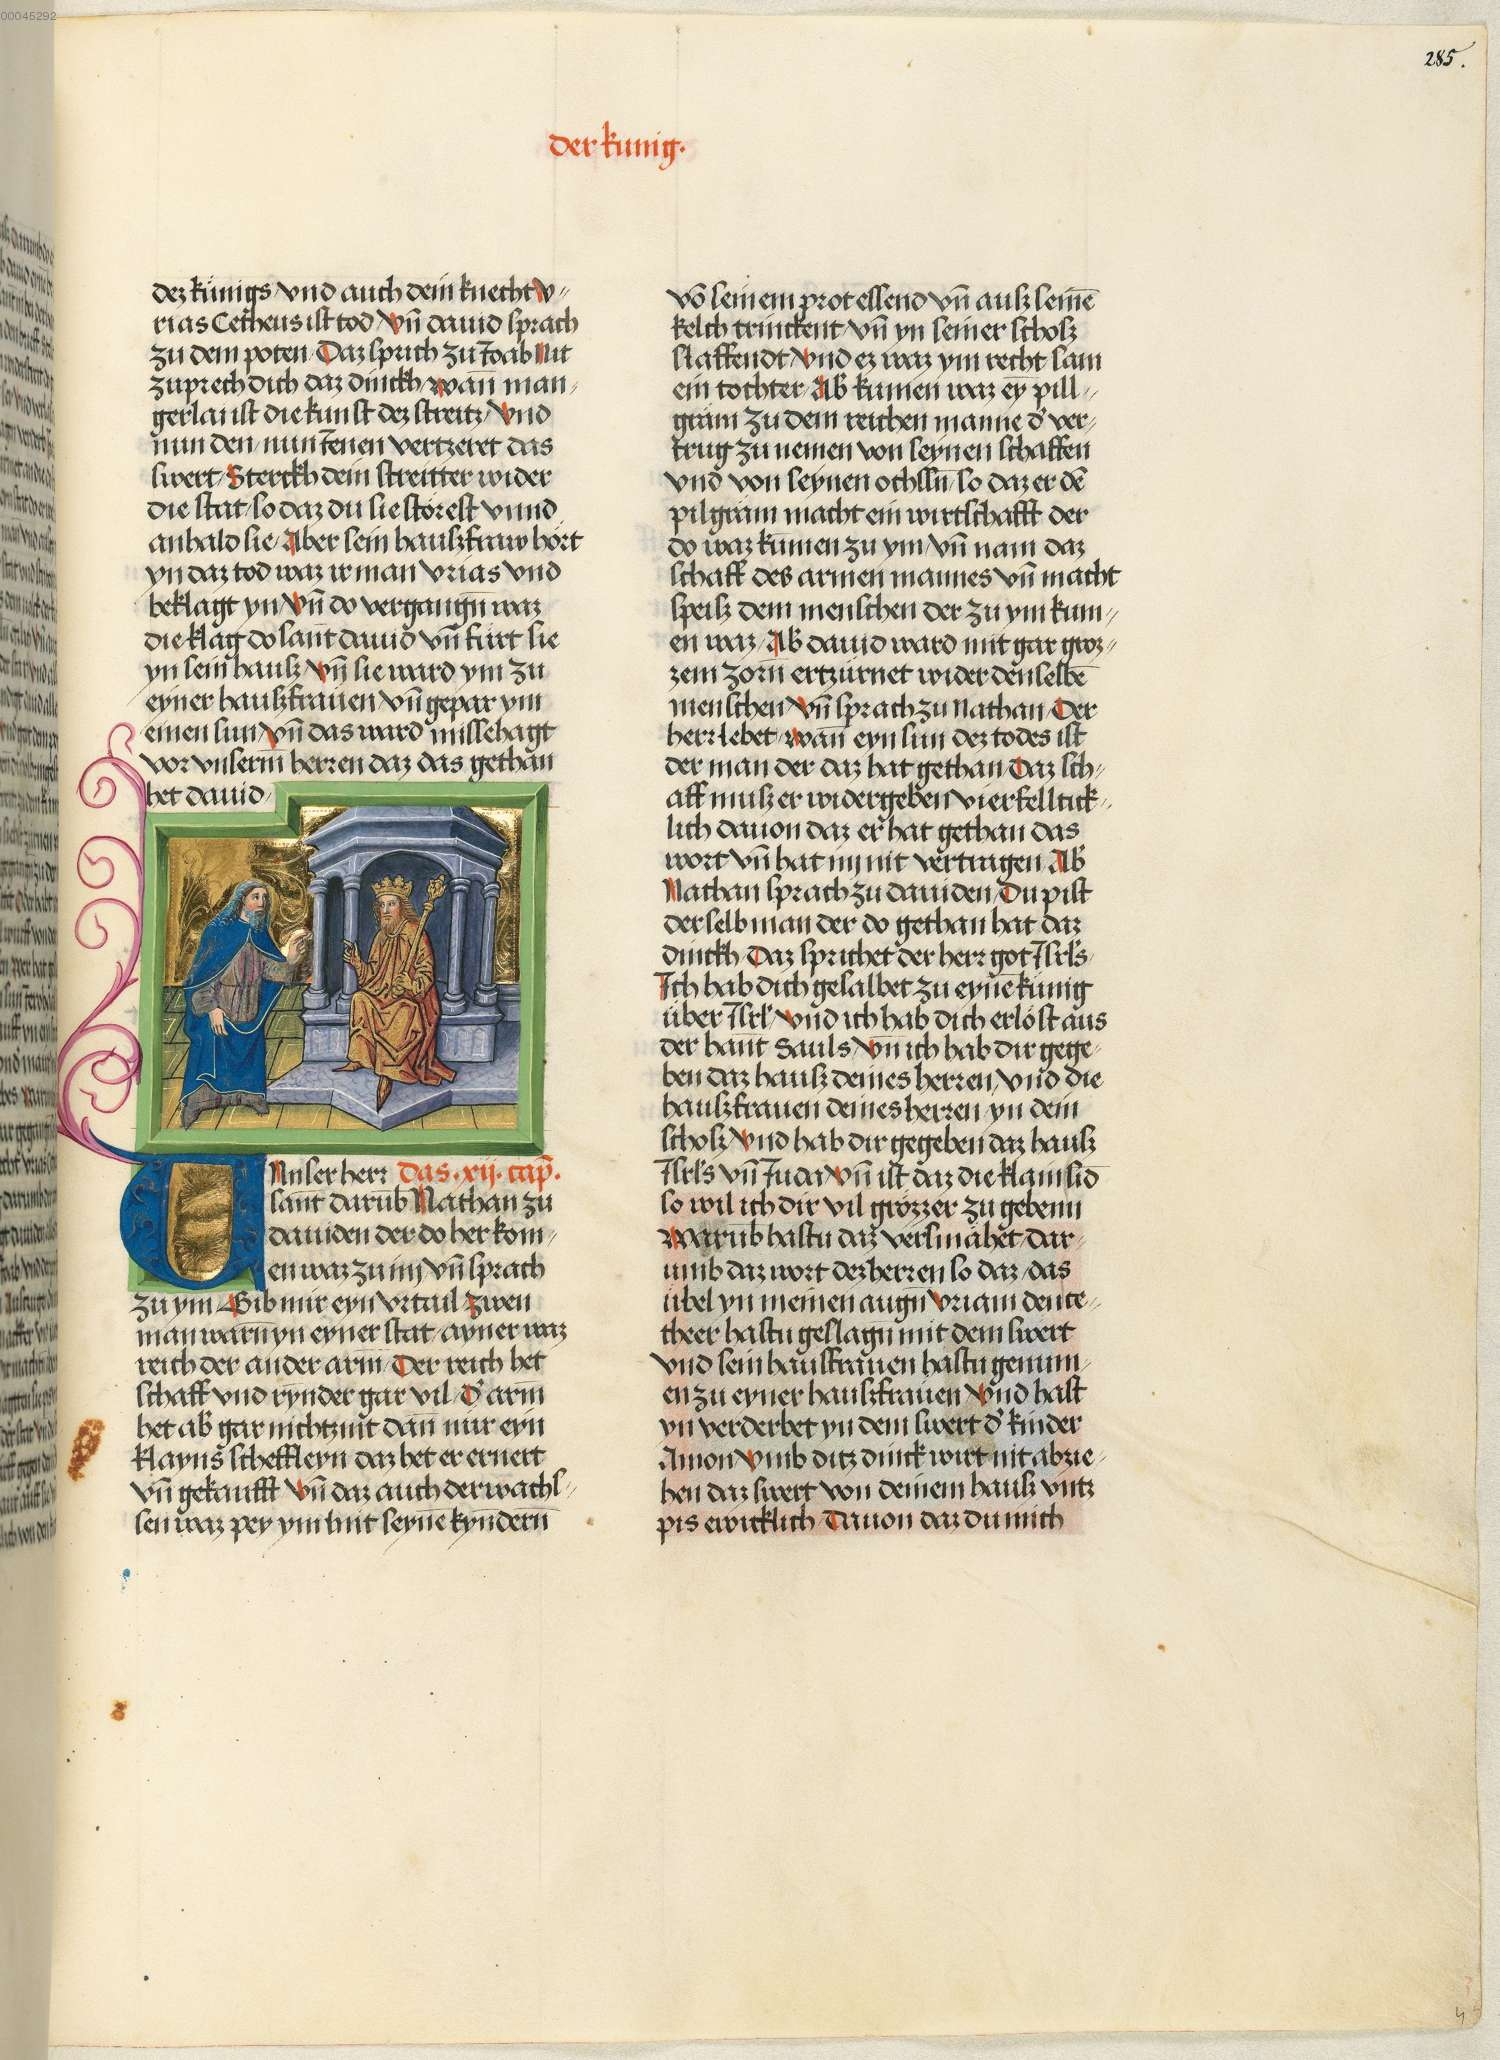 00045292
285.
der kunig.
dez künigs vnd auch dein knecht v〃
rias Cetheus ist tod Vn̄ dauid sprach
zu dem poten Daz sprich zu Ioab Nit
zuprech dich daz dinckh wann man〃
gerlai ist die kunst dez streitz Vnd
nun den nun ienen vertzeret das
swert Sterckh dein streitter wider
die stat so daz du sie störest vnnd
anhald sie Aber sein hauszfraw hört
yn daz tod waz ir man Vrias vnd
beklagt yn Vn̄ do vergangn̄ waz
die klag do sant dauid vn̄ fürt sie
yn sein hausz Vn̄ sie ward ym zu
eyner hauszfrauen vn̄ gepar ym
einen sun Vn̄ das ward missehagt
vor vnserm̄ herren daz das gethan
het dauid
Vnser herr das .xij. cap̄.
sant darub Nathan zu
dauiden der do her kom〃
en waz zu im Vn̄ sprach
zu ym Gib mir eyn vrtail Zwen
man warn̄ yn eyner stat ayner waz
reich der ander arm̄ Der reich het
schaff vnd rynder gar vil D' arm̄
het ab' gar nichtznit dan̄ nur eyn
klayns scheffleyn daz het er ernert
vn̄ gekaufft Vn̄ daz auch derwachs〃
sen waz pey ym mit seyne kyndern̄
vō seinem prot essend vn̄ ausz seinē
kelch trinckent vn̄ yn seiner schosz
slaffendt Vnd ez waz ym recht sam
ein tochter Ab' kumen waz ey pill〃
gram zu dem reichen manne d' ver〃
trug zu nemen von seynen schaffen
vnd von seynen ochssn̄ so daz er dē
pilgram macht ein wirtschafft der
do waz kumen zu ym vn̄ nam daz
schaff des armen mannes vn̄ macht
speisz dem menschen der zu ym kum〃
en waz Ab' dauid ward mit gar groz〃
zem zorn̄ ertzürnet wider denselbē
menschen Vn̄ sprach zu Nathan Der
herr lebet wan̄ eyn sun dez todes ist
der man der daz hat gethan Daz sch〃
aff musz er widergeben vierfelltick〃
lich dauon daz er hat gethan das
wort vn̄ hat im nit vertragen Ab'
Nathan sprach zu dauiden Du pist
der selb man der do gethan hat daz
dinckh Daz sprichet der herr got Isrl's
Ich hab dich gesalbet zu eyne künig
über Isrl' Vnd ich hab dich erlöst aus
der hant Sauls Vn̄ ich hab dir gege〃
ben daz hausz deines herren vnd die
hauszfrauen deines herren yn dein
schosz Vnd hab dir gegeben daz hausz
Isrl's vn̄ Iuda Vn̄ ist daz die klain sīd
so wil ich dir vil grözzer zu gebenn
Warub hastu daz versmähet dar〃
umb daz wort dez herren so daz das
übel yn meinen augn̄ Vriam den ce〃
theer hastu geslagn̄ mit dem swert
vnd sein hausfrauen hastu genum〃
en zu eyner hauszfrauen Vnd hast
yn verderbet yn dem swert d' kinder
Amon Vmb ditz dinck wirt nit abzie〃
hen daz swert von deinem hausz vntz
pis ewicklich Dauon daz du mich